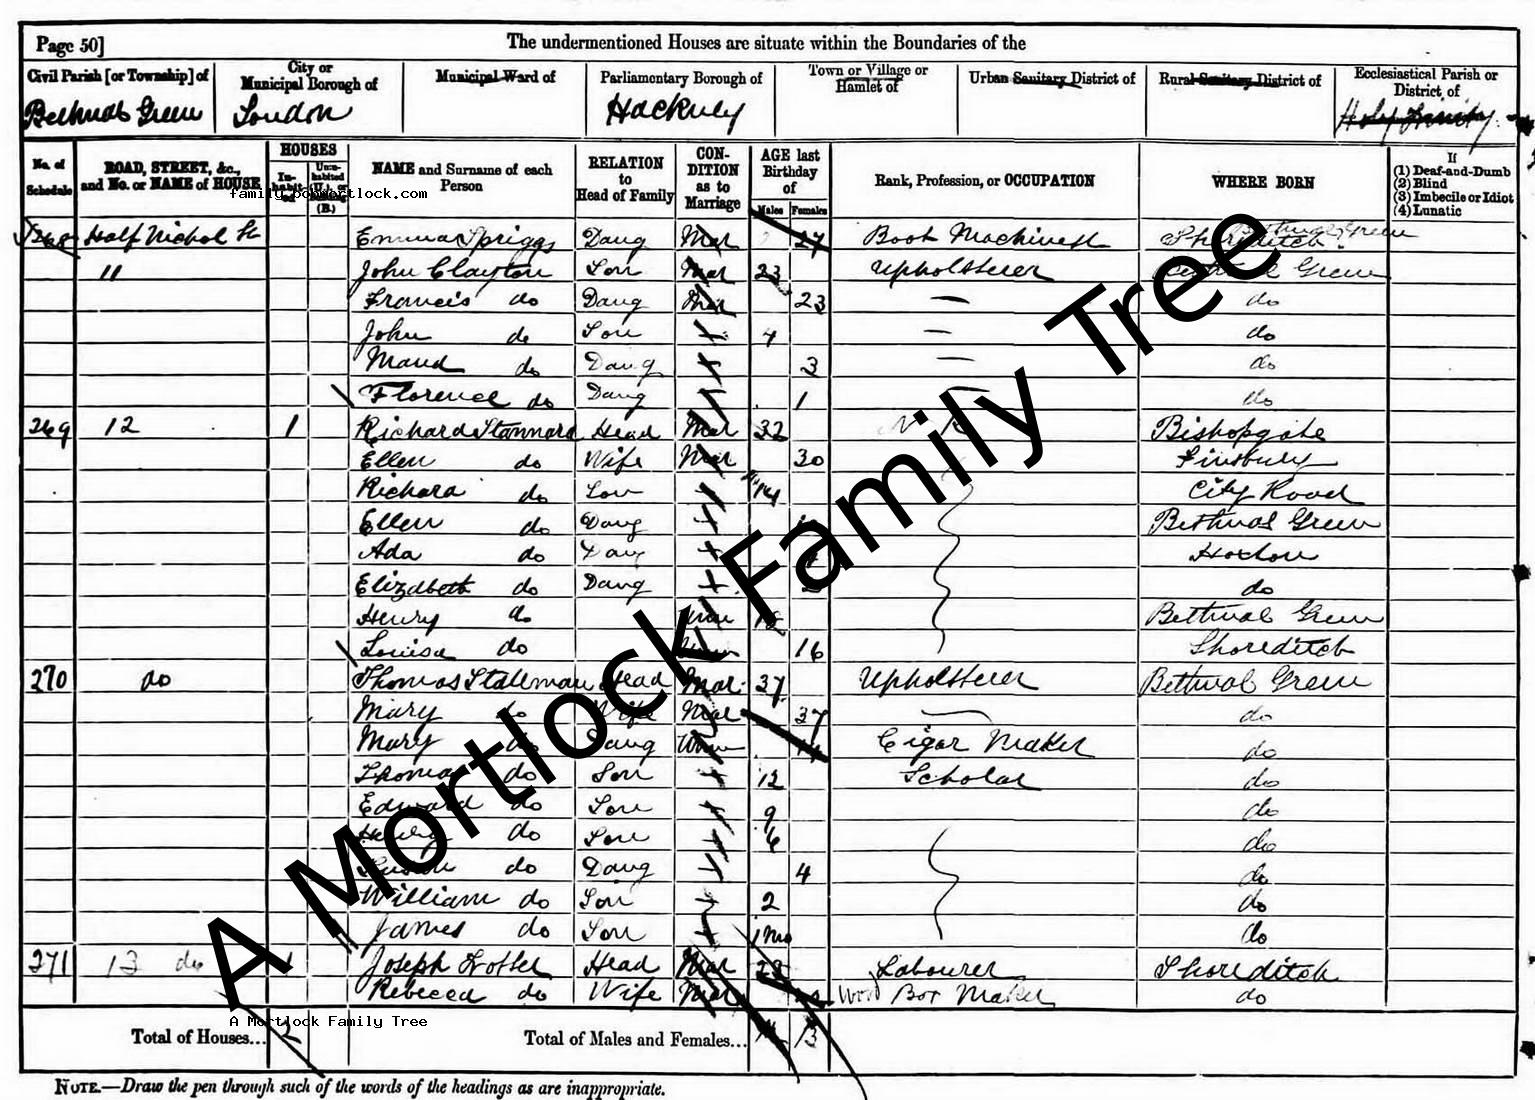 Page 50]
The undermentioned Houses are situate within the Boundaries of the
Civil Parish [or Township] of
City or Municipal Borough of
Municipal Ward of
Parliamentary Borough of
Town or Village or Hamlet of
Urban Sanitary District of
Rural Sanitary District of
Ecclesiastical Parish or District of
Bethnal Green London Hackney Holy Trinity.
No. of Schedule
ROAD, STREET, &c., and No. or NAME of HOUSE
HOUSES
In-habit-ed
Unin-habited (U.), or Building (B.)
NAME and Surname of each Person
RELATION to Head of Family
CON-DITION as to Marriage
AGE last Birthday of
Males Females
Rank, Profession, or OCCUPATION
WHERE BORN
If
(1) Deaf-and-Dumb
(2) Blind
(3) Imbecile or Idiot
(4) Lunatic
family.bobmortlock.com
268 Half Nichol St Emma Spriggs Daug Mar 27 Book Machinest Shoreditch Bethnal Green
11 John Clayton Son Mar 23 Upholsterer Green
Francis do Daug Mar 23 — do
John do Son 4 — do
Maud do Daug 3 — do
Florence do Daug 1 do
269 12 1 Richard Stannard Head Mar 32 Bishopgate
Ellen do Wife Mar 30 Finsbury
Richard do Son City Road
Ellen do Daug Bethnal Green
Ada do Daug Hoxton
Elizabeth do Daug do
Henry do 18 Bethnal Green
Louisa do 16 Shoreditch
270 do Thomas Stallman Head Mar 37 Upholsterer Bethnal Green
Mary do Wife Mar 37 — do
Mary do Daug Unm Cigar Maker do
Thomas do Son 12 Scholar do
Edward do Son 9 do
Henry do Son 6 do
do Daug 4 do
William do Son 2 do
James do Son 1 Mo do
271 13 do 1 Joseph Head Mar Labourer Shoreditch
Rebecca do Wife Mar Wood Box Maker do
A Mortlock Family Tree
A Mortlock Family Tree
Total of Houses... 2
Total of Males and Females... 13
NOTE.—Draw the pen through such of the words of the headings as are inappropriate.